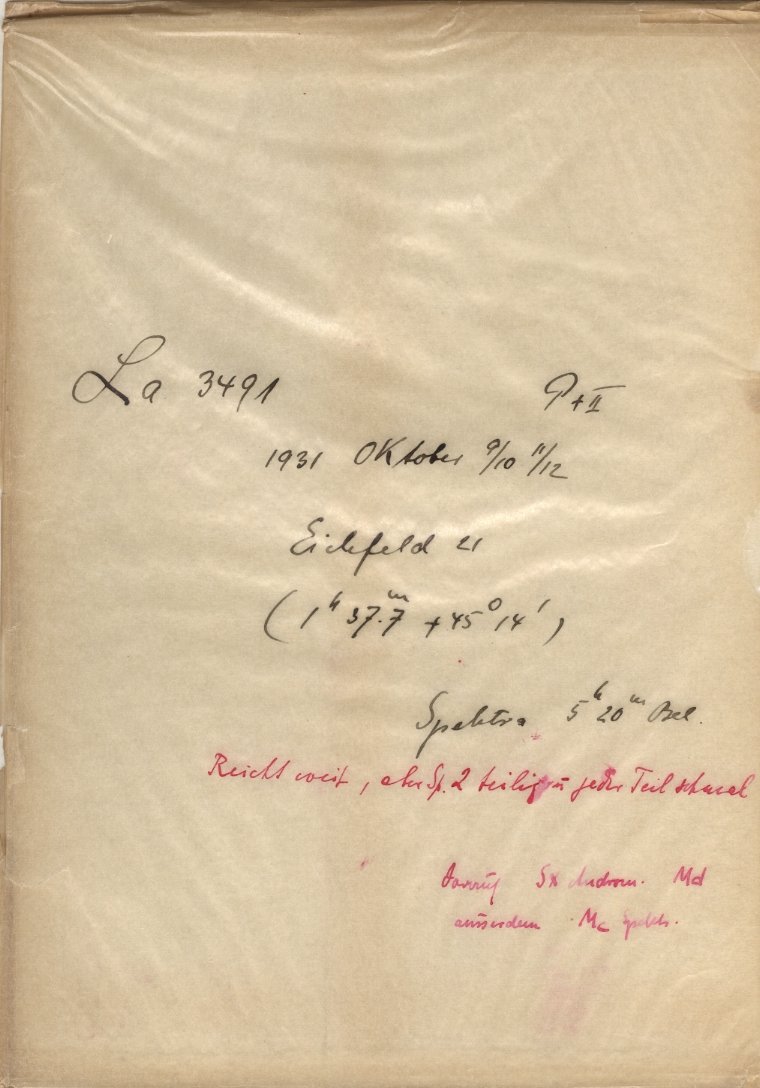 La 3491 P+II
1931 Oktober 9/10 11/12
Eichfeld 21
(1ʰ 37.7ᵐ +45° 14′)
Spektra 5ʰ 20ᵐ Bel.
Reicht weit, aber Sp. 2 teilig u jeder Teil schmal
darauf SX Androm. Md
ausserdem Mc Spektr.